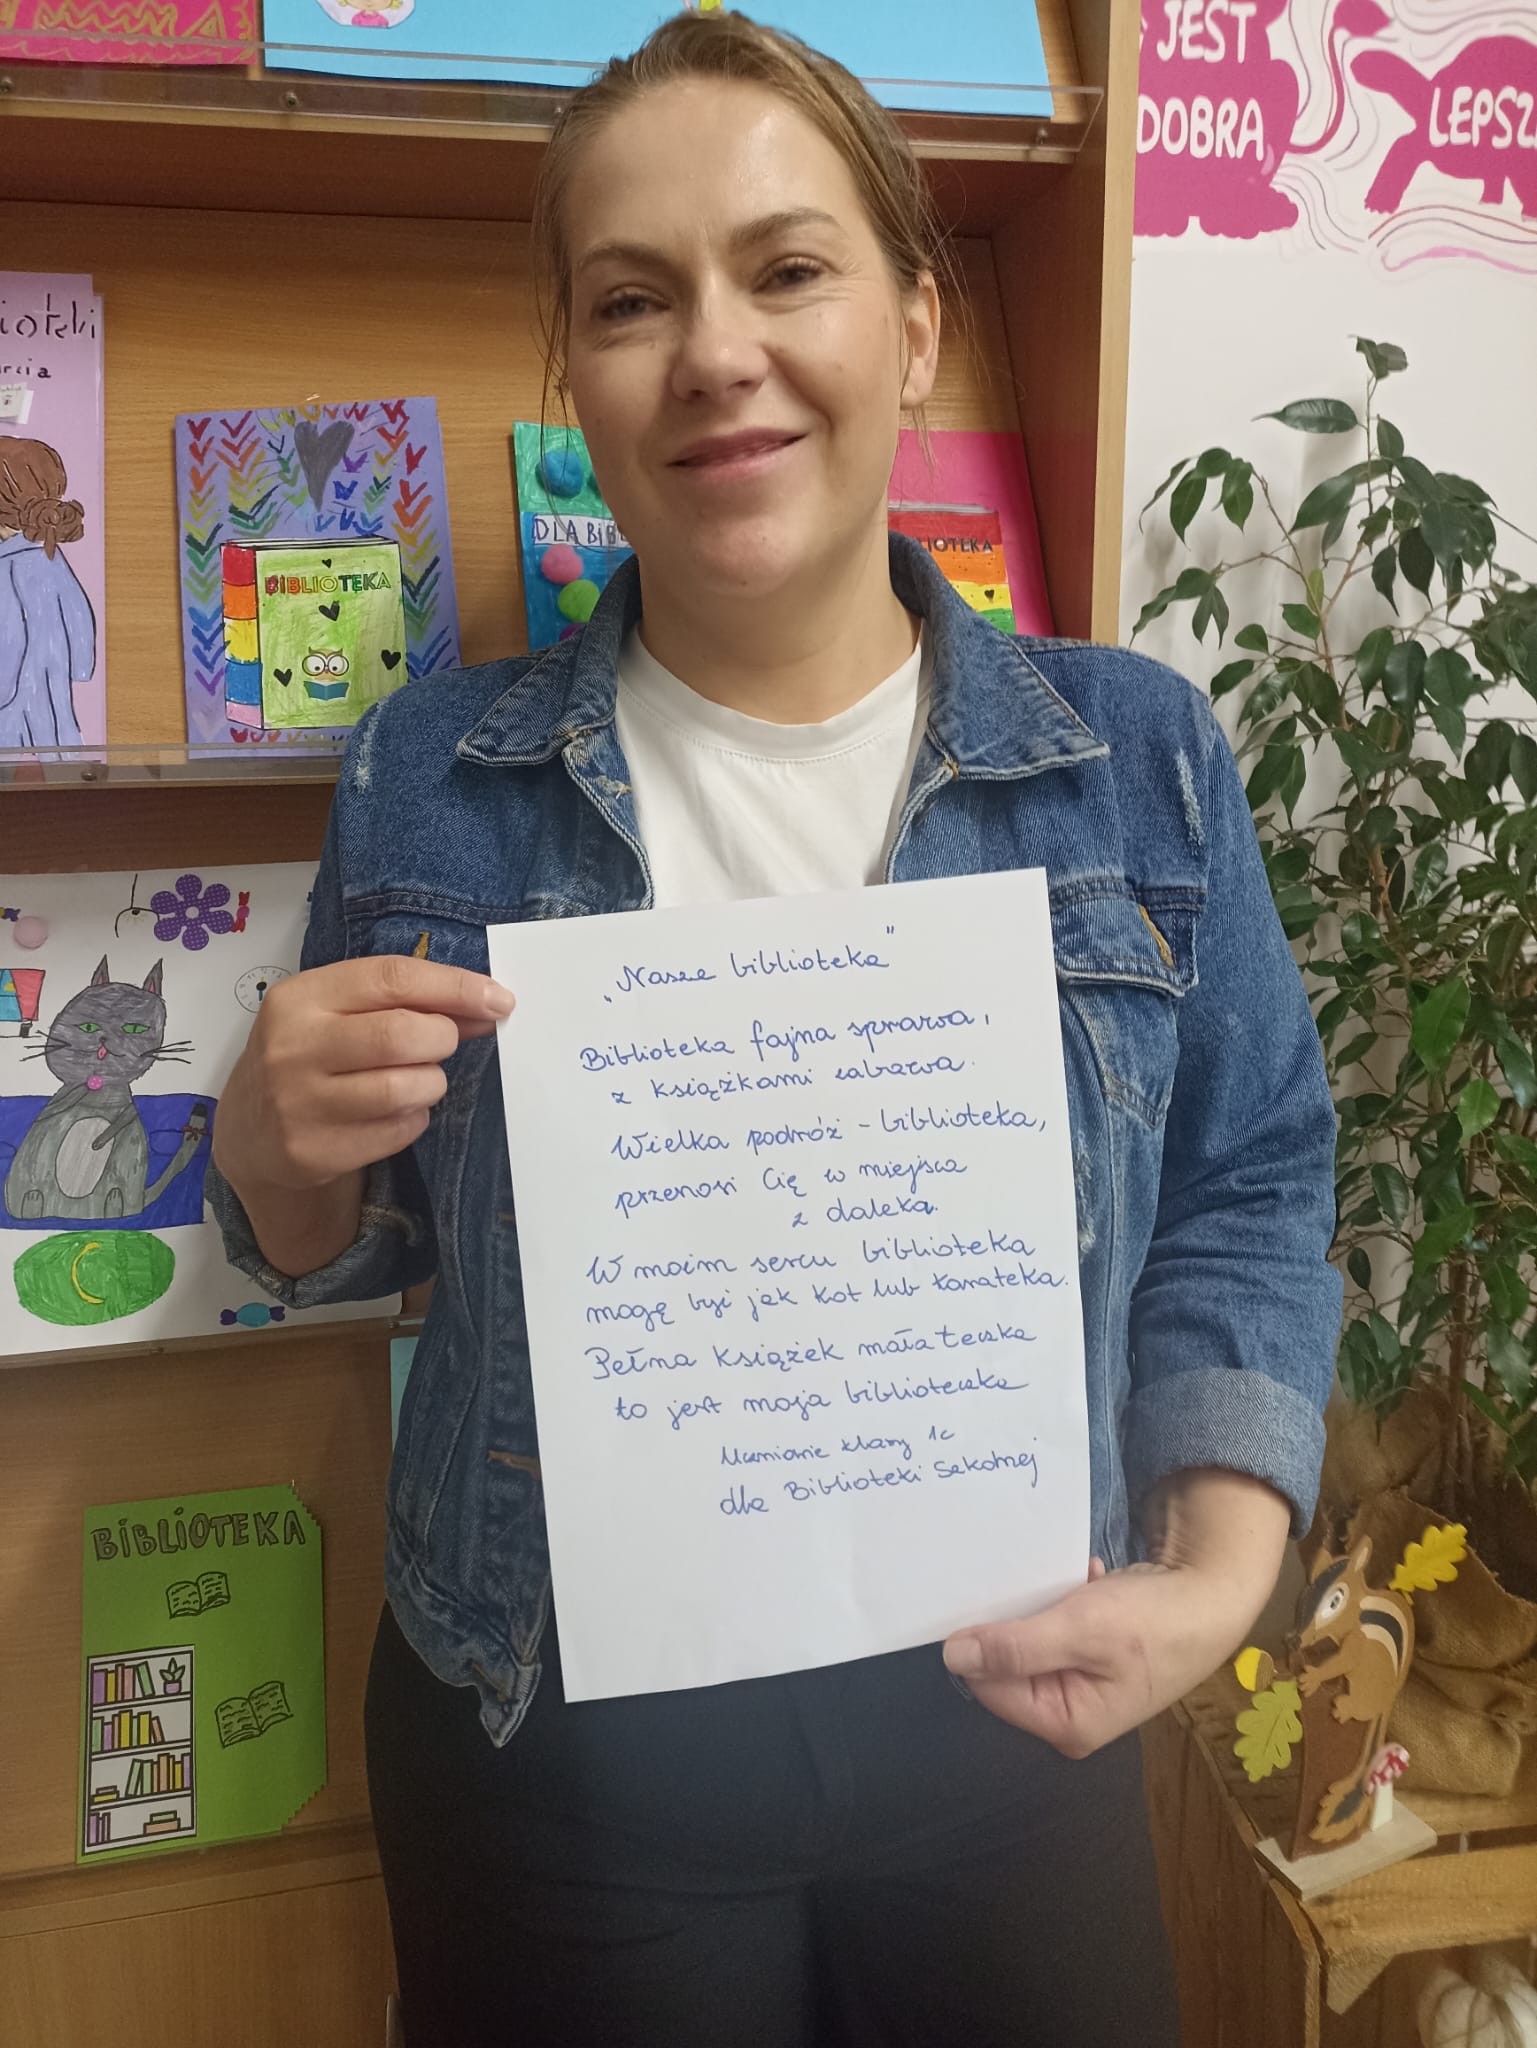 JEST
DOBRA
LEPSZ
ioteki
DLA BIBL
BIBLIOTEKA
LIOTEKA
„Nasza biblioteka”
Biblioteka fajna sprawa,
z książkami zabawa.
Wielka podróż - biblioteka,
przenosi Cię w miejsca
z daleka.
W moim sercu biblioteka
mogę być jak kot lub kanateka.
Pełna książek mała teczka
to jest moja biblioteczka
Uczniowie klasy 1c
dla Biblioteki Szkolnej
BIBLIOTEKA